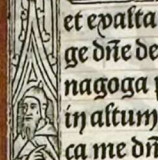 et exalta
ge dñe de
nagoga p
in altum
ca me dñ